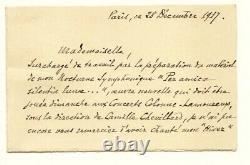 Paris, ce 28 Décembre 1917
Mademoiselle,
Surchargé de travail par la préparation de matériel
de mon Nocturne Symphonique "Per amica
silentia lunae...", œuvre nouvelle qui doit être
jouée dimanche aux Concerts Colonne-Lamoureux,
sous la direction de Camille Chevillard, je n'ai pu
encore vous remercier d'avoir chanté mon "Hiver"